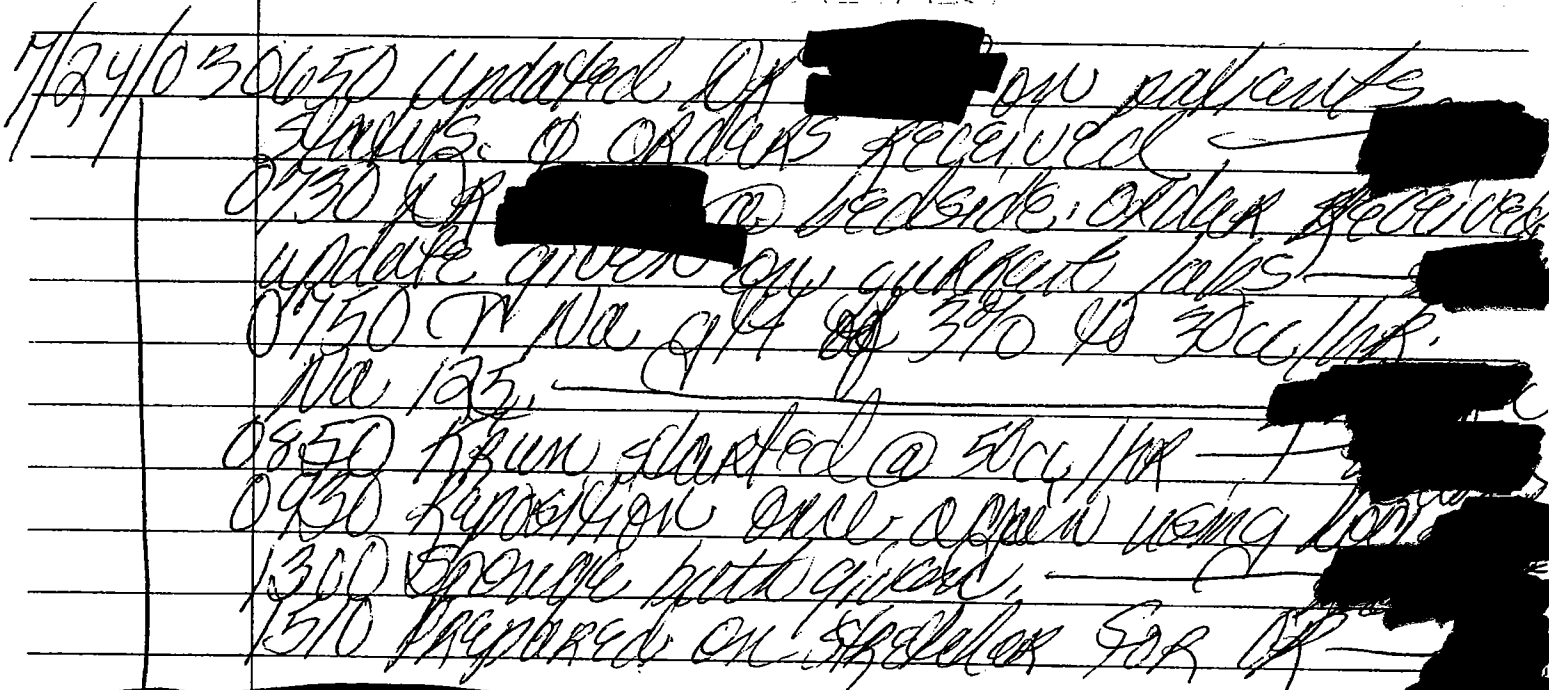 7/24/03 0650 updated DR on patients
status. Ø orders received
0730 DR @ bedside. order received
update given on current labs
0750 ↑ Na gtt of 3% to 30cc/hr.
Na 125.
0850 K run started @ 50cc/hr
0930 Reposition once again using
1300 Sponge bath given.
1510 Prepared on stretcher for OR